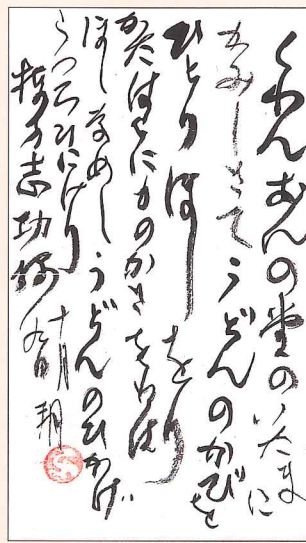 くわんおんの堂のいたまに
かみしきてうどんのかびを
ひとりほしをり
かたはらにものかきをれば
ほしなめしうどんのひかげ
うつろひにけり
棟方志功様
十月九日 朔